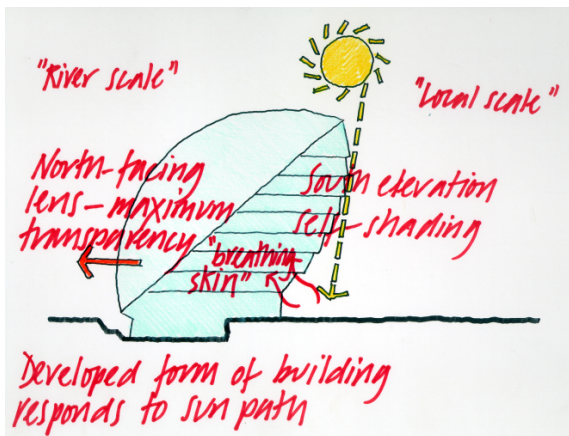 "River scale"
"Local scale"
North-facing
lens-maximum
transparency
South elevation
self-shading
"breathing
skin"
Developed form of building
responds to sun path